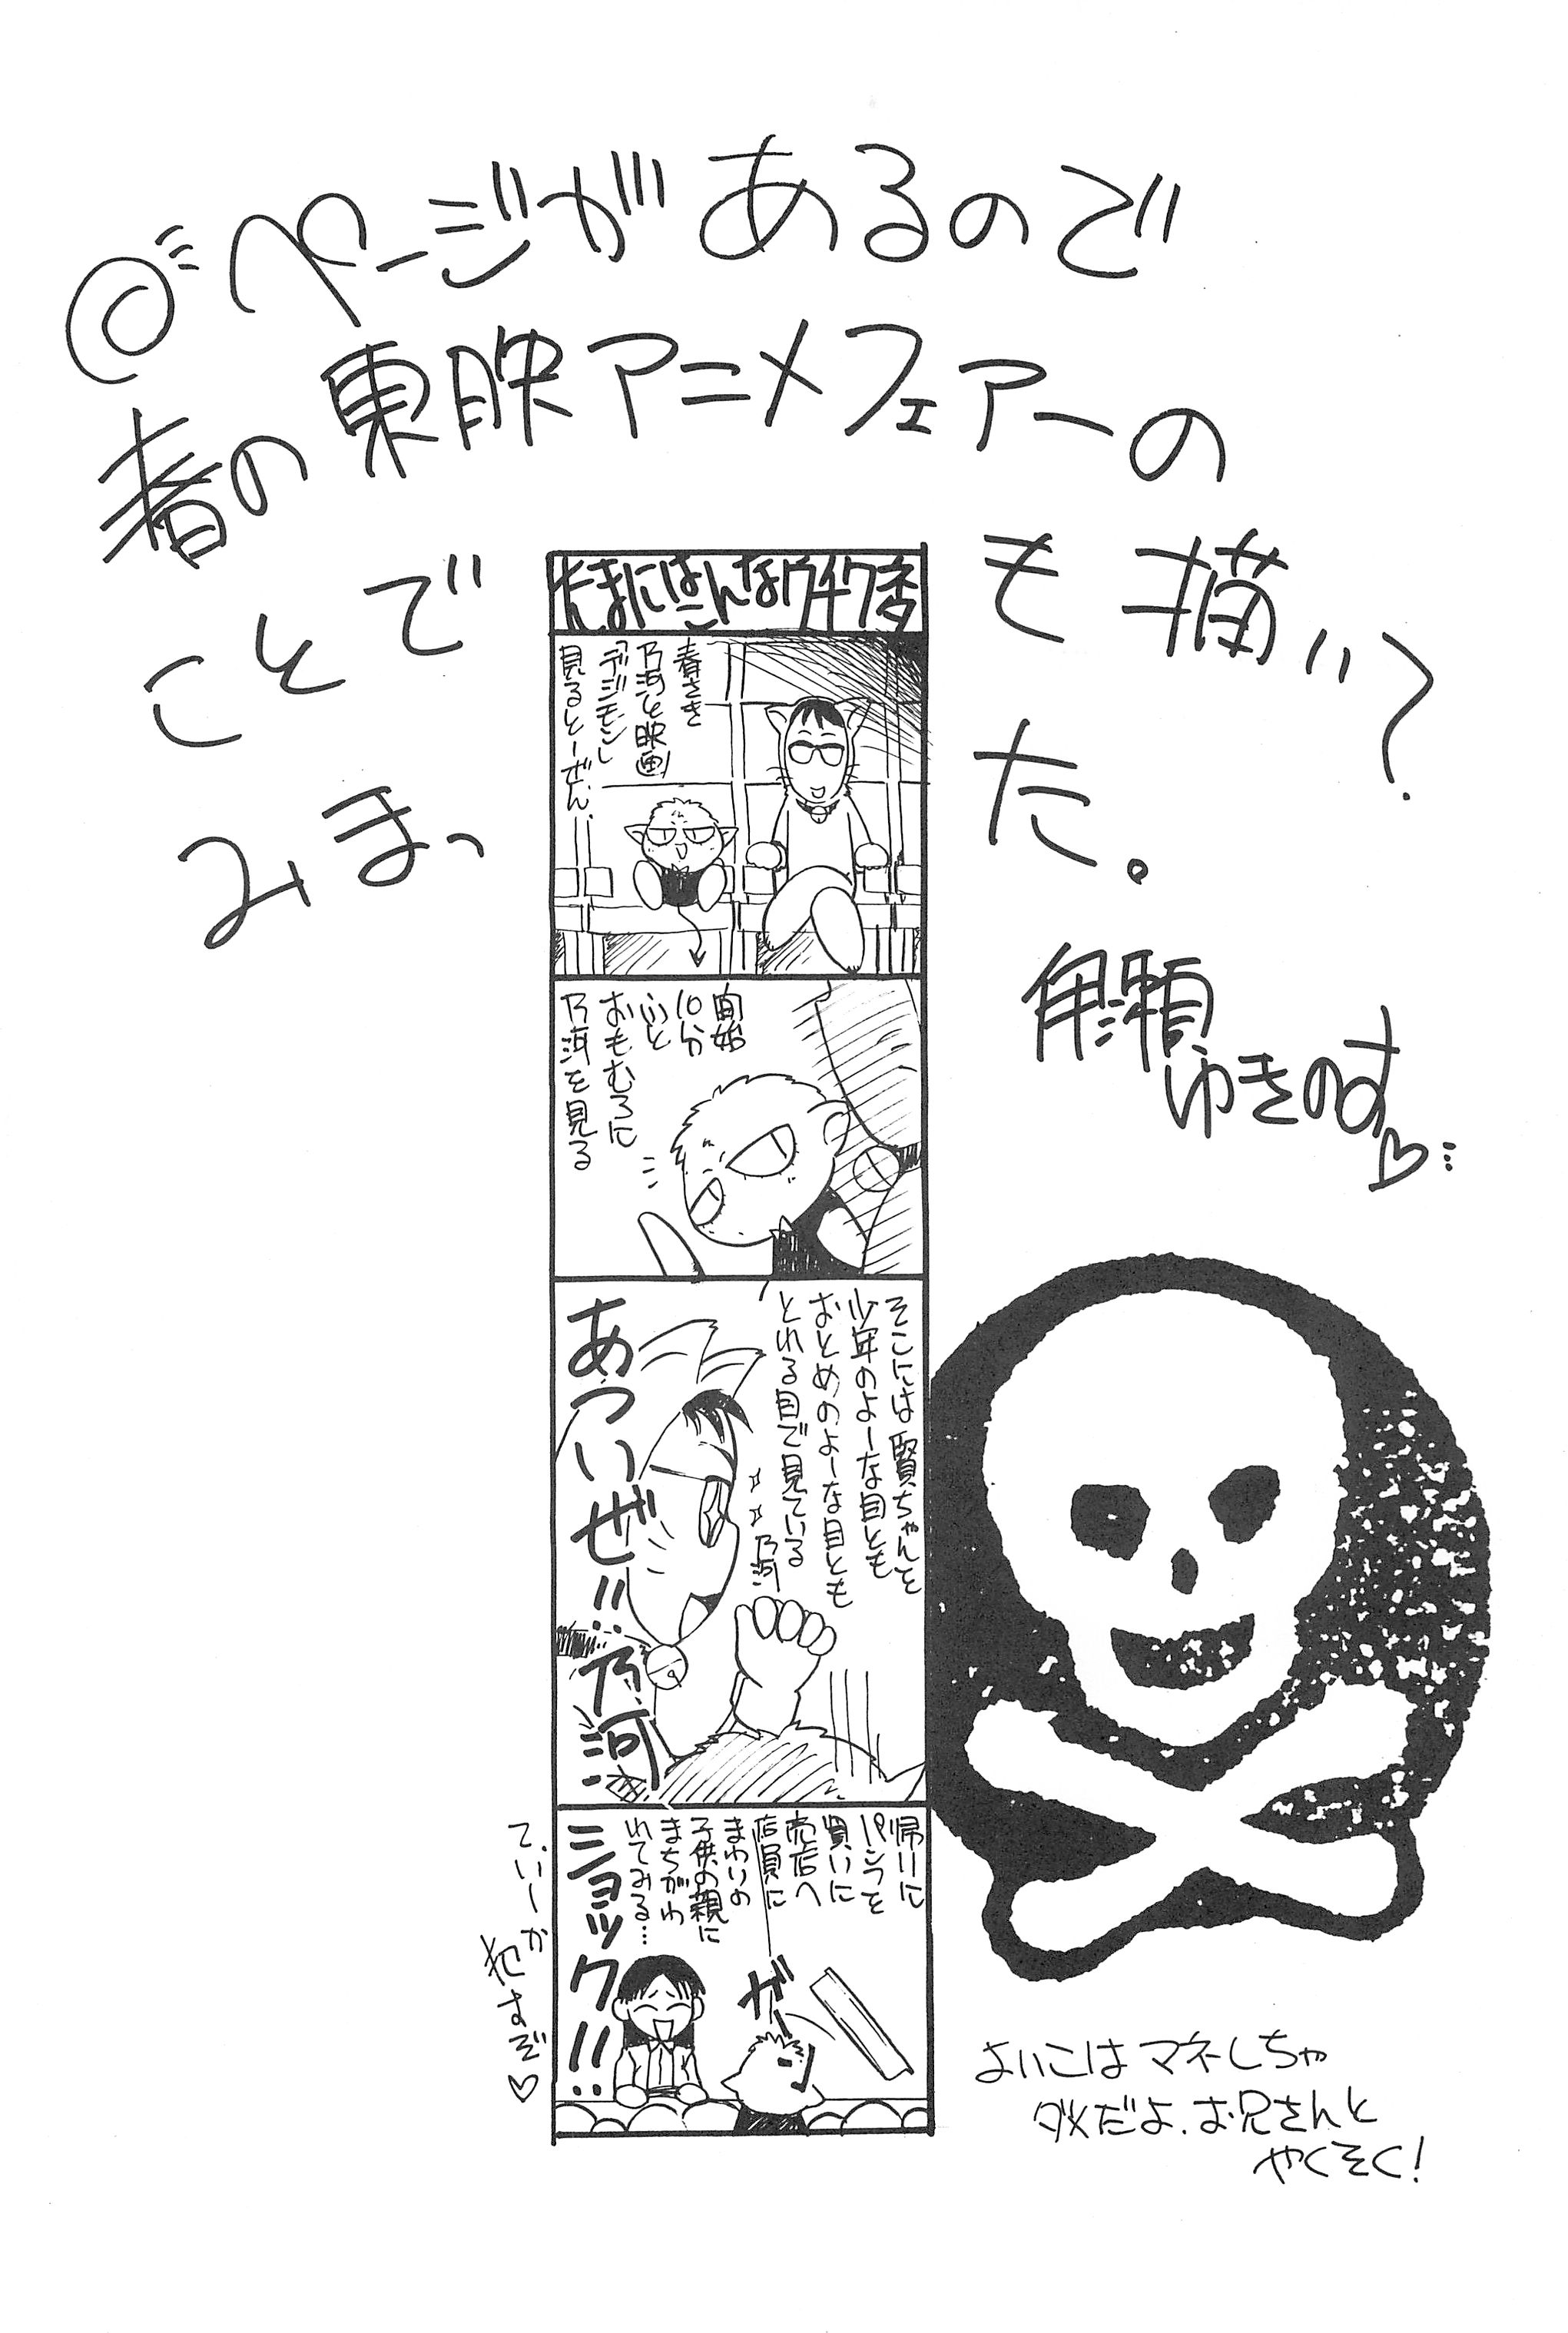 ページがあるので
春の東映アニメフェアーの
ことでも描いて
みまった。
ゆきのす♡
たまにはこんなウチワネタ
春さき
乃河と映画
「デジモン」
見るとーぜん、
開始
10分
ふと
おもむろに
乃河を見る
そこには賢ちゃんを
少年のよーな目とも
おとめのよーな目とも
とれる目で見ている
乃河
あついぜ!!乃河
帰りに
パンフを
買いに
売店へ
店員に
まわりの
子供の親に
まちがわ
れてみる…
ショック!!
ガーン
てぃーか
犯すぞ♡
よいこはマネしちゃ
ダメだよ、お兄さんと
やくそく!